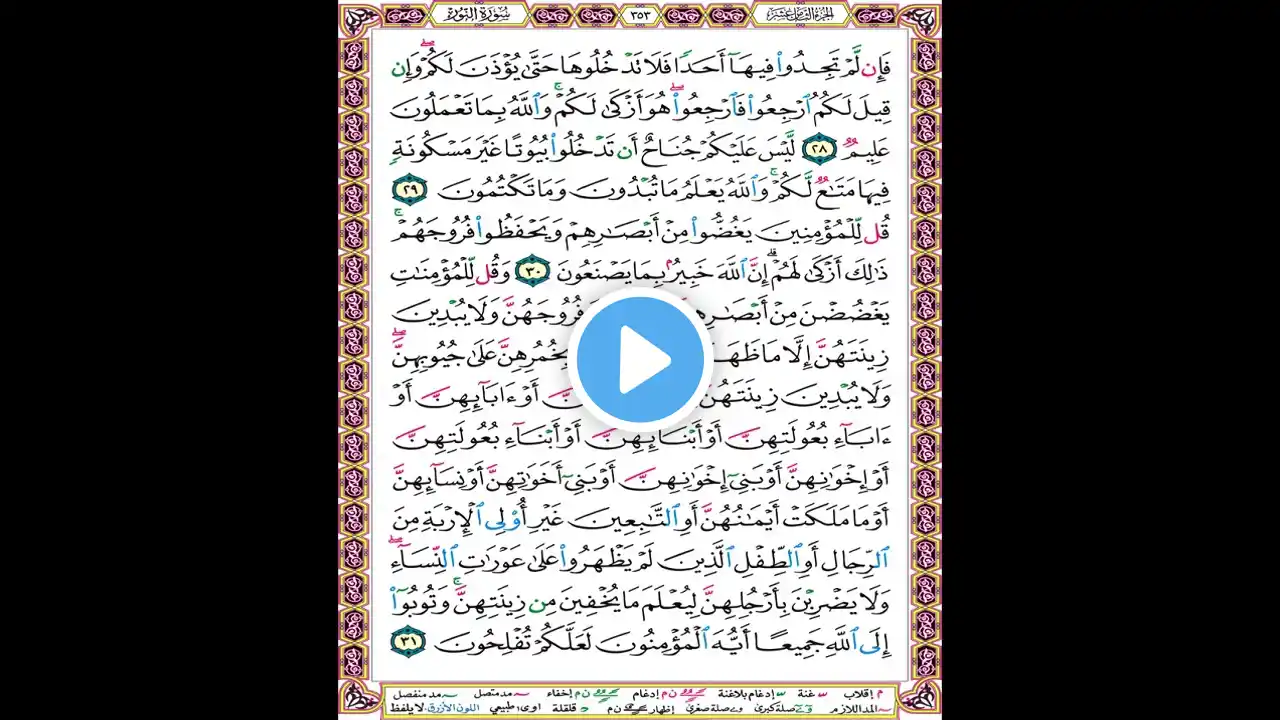 الجزء الثامن عشر ٣٥٣ سورة النور
فَإِن لَّمْ تَجِدُوا۟ فِيهَآ أَحَدًا فَلَا تَدْخُلُوهَا حَتَّىٰ يُؤْذَنَ لَكُمْ ۖ وَإِن
قِيلَ لَكُمُ ٱرْجِعُوا۟ فَٱرْجِعُوا۟ ۖ هُوَ أَزْكَىٰ لَكُمْ ۚ وَٱللَّهُ بِمَا تَعْمَلُونَ
عَلِيمٌ ٢٨ لَّيْسَ عَلَيْكُمْ جُنَاحٌ أَن تَدْخُلُوا۟ بُيُوتًا غَيْرَ مَسْكُونَةٍ
فِيهَا مَتَٰعٌ لَّكُمْ ۚ وَٱللَّهُ يَعْلَمُ مَا تُبْدُونَ وَمَا تَكْتُمُونَ ٢٩
قُل لِّلْمُؤْمِنِينَ يَغُضُّوا۟ مِنْ أَبْصَٰرِهِمْ وَيَحْفَظُوا۟ فُرُوجَهُمْ ۚ
ذَٰلِكَ أَزْكَىٰ لَهُمْ ۗ إِنَّ ٱللَّهَ خَبِيرٌۢ بِمَا يَصْنَعُونَ ٣٠ وَقُل لِّلْمُؤْمِنَٰتِ
يَغْضُضْنَ مِنْ أَبْصَٰرِهِ فُرُوجَهُنَّ وَلَا يُبْدِينَ
زِينَتَهُنَّ إِلَّا مَا ظَهَ بِخُمُرِهِنَّ عَلَىٰ جُيُوبِهِنَّ ۖ
وَلَا يُبْدِينَ زِينَتَهُنَّ أَوْ ءَابَآئِهِنَّ أَوْ
ءَابَآءِ بُعُولَتِهِنَّ أَوْ أَبْنَآئِهِنَّ أَوْ أَبْنَآءِ بُعُولَتِهِنَّ
أَوْ إِخْوَٰنِهِنَّ أَوْ بَنِىٓ إِخْوَٰنِهِنَّ أَوْ بَنِىٓ أَخَوَٰتِهِنَّ أَوْ نِسَآئِهِنَّ
أَوْ مَا مَلَكَتْ أَيْمَٰنُهُنَّ أَوِ ٱلتَّٰبِعِينَ غَيْرِ أُو۟لِى ٱلْإِرْبَةِ مِنَ
ٱلرِّجَالِ أَوِ ٱلطِّفْلِ ٱلَّذِينَ لَمْ يَظْهَرُوا۟ عَلَىٰ عَوْرَٰتِ ٱلنِّسَآءِ ۖ
وَلَا يَضْرِبْنَ بِأَرْجُلِهِنَّ لِيُعْلَمَ مَا يُخْفِينَ مِن زِينَتِهِنَّ ۚ وَتُوبُوٓا۟
إِلَى ٱللَّهِ جَمِيعًا أَيُّهَ ٱلْمُؤْمِنُونَ لَعَلَّكُمْ تُفْلِحُونَ ٣١
م إقلاب غنة إدغام بلاغنة ن م إدغام ن م إخفاء مد متصل مد منفصل
المد اللازم صلة كبرى صلة صغرى إظهار ن م قلقلة اوى طبيعي اللون الأزرق لا يلفظ